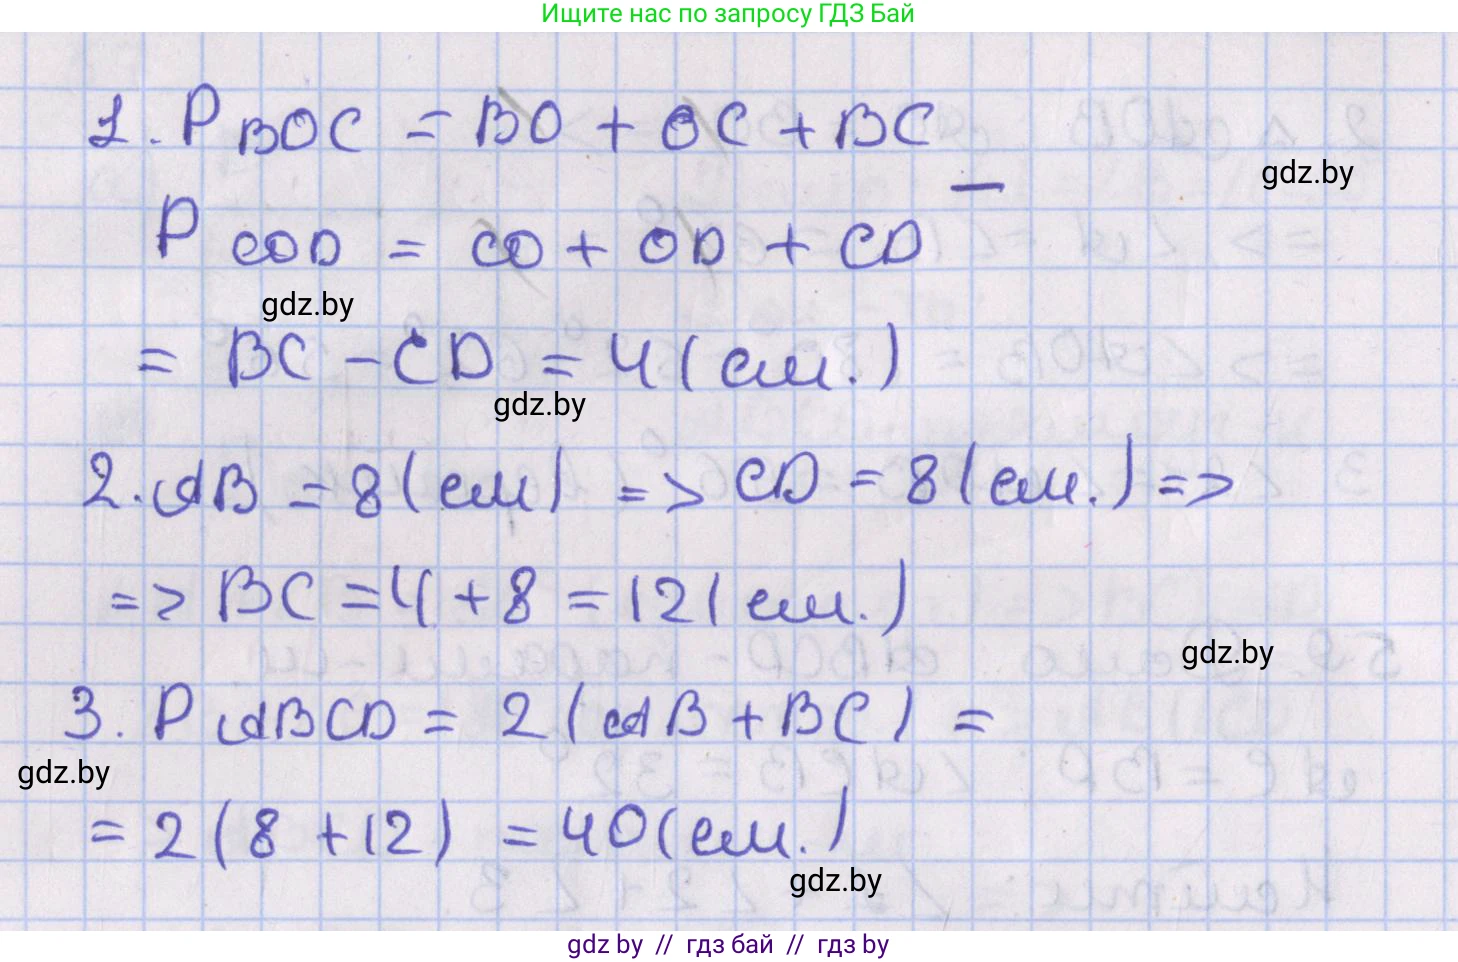 Ищите нас по запросу ГДЗ Бай
1. P BOC = BO + OC + BC
gdz.by
—
P COD = CO + OD + CD
gdz.by
= BC - CD = 4 (см.)
gdz.by
2. AB = 8 (см) => CD = 8 (см.) =>
=> BC = 4 + 8 = 12 (см.)
gdz.by
3. P ABCD = 2 (AB + BC) =
gdz.by
= 2 (8 + 12) = 40 (см.)
gdz.by
gdz by // гдз бай // гдз by